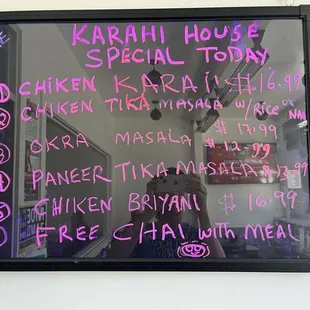 KARAHI HOUSE
SPECIAL TODAY
① CHIKEN KARAII $16.99
② CHIKEN TIKA MASALA W/RICE OR NAN
$ 17.99
③ OKRA MASALA $ 12.99
④ PANEER TIKA MASALA $ 13.99
⑤ CHIKEN BRIYANI $ 16.99
FREE CHAI WITH MEAL